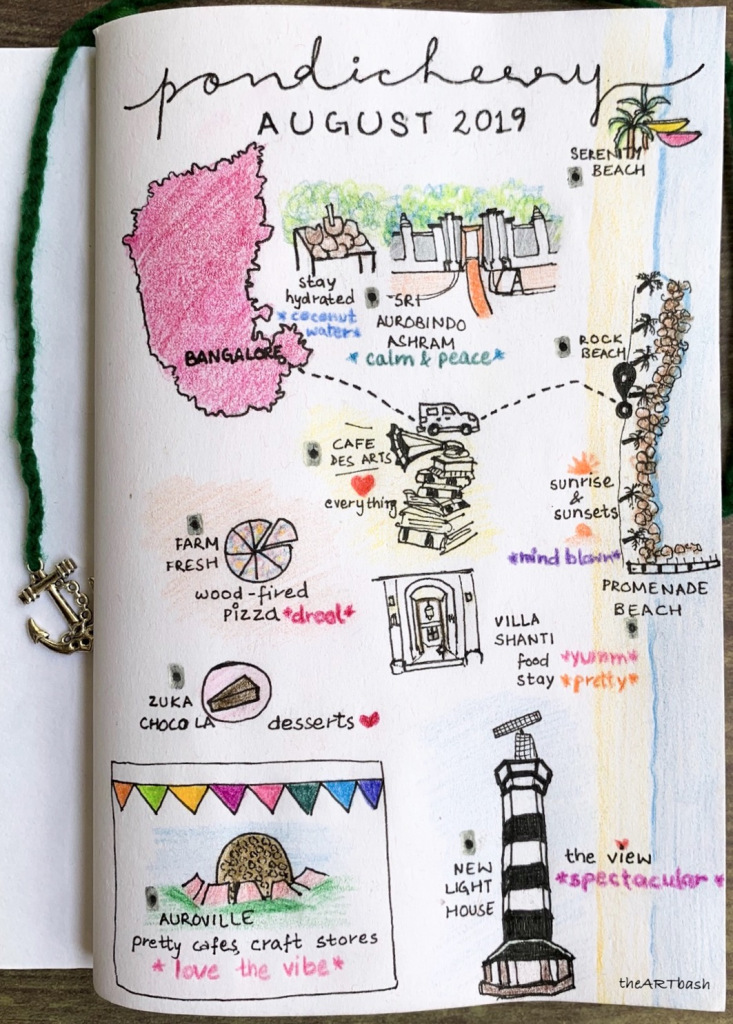 pondicherry
AUGUST 2019
SERENITY
BEACH
stay
hydrated
*coconut
water*
SRI
AUROBINDO
ASHRAM
*calm & peace*
ROCK
BEACH
BANGALORE
CAFE
DES ARTS
everything
sunrise
&
sunsets
*mind blown*
PROMENADE
BEACH
FARM
FRESH
wood-fired
pizza *drool*
VILLA
SHANTI
food *yumm*
stay *pretty*
ZUKA
CHOCOLA
desserts
AUROVILLE
pretty cafes, craft stores
*love the vibe*
NEW
LIGHT
HOUSE
the view
*spectacular*
theARTbash